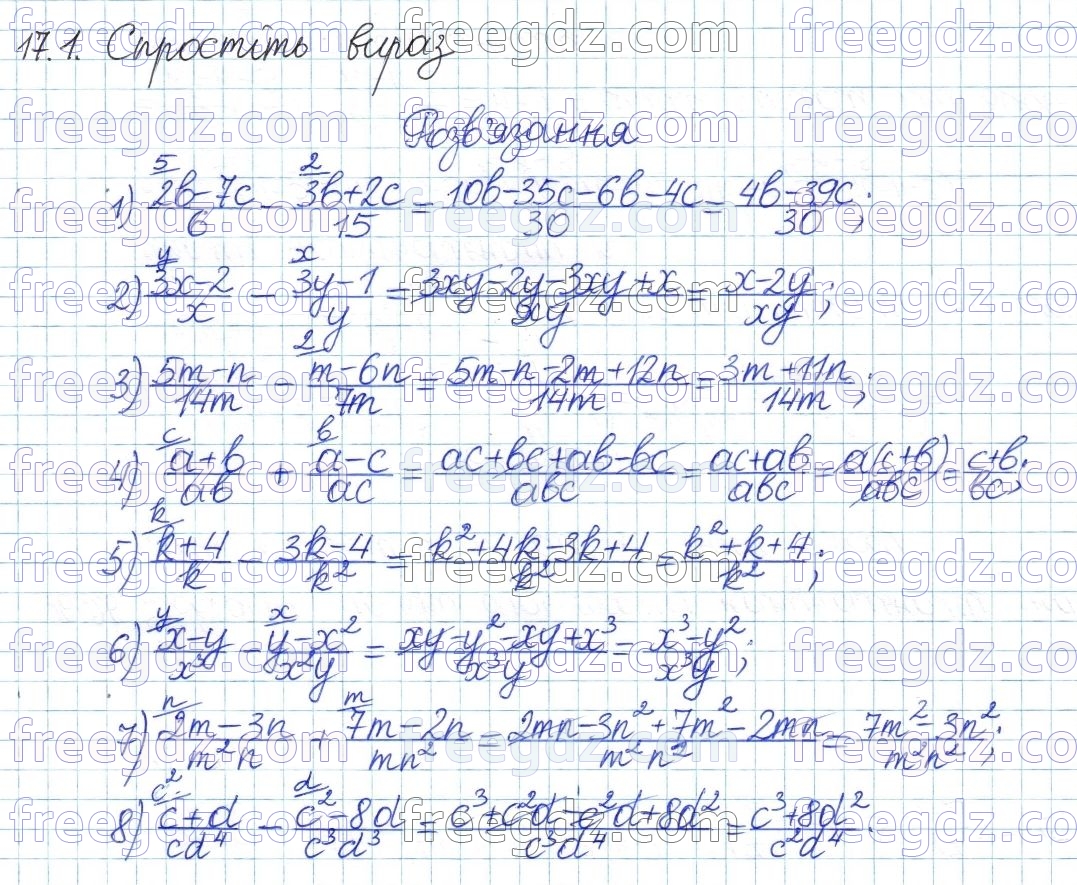 17.1. Спростіть вираз
Розв'язання
1) (2b-7c)/6 ^5 - (3b+2c)/15 ^2 = (10b-35c-6b-4c)/30 = (4b-39c)/30;
2) (3x-2)/x ^y - (3y-1)/y ^x = (3xy-2y-3xy+x)/xy = (x-2y)/xy;
3) (5m-n)/14m - (m-6n)/7m ^2 = (5m-n-2m+12n)/14m = (3m+11n)/14m;
4) (a+b)/ab ^c + (a-c)/ac ^b = (ac+bc+ab-bc)/abc = (ac+ab)/abc = a(c+b)/abc = (c+b)/bc;
5) (k+4)/k ^k - (3k-4)/k² = (k²+4k-3k+4)/k² = (k²+k+4)/k²;
6) (x-y)/x³ ^y - (y-x²)/x²y ^x = (xy-y²-xy+x³)/x³y = (x³-y²)/x³y;
7) (2m-3n)/m²n ^n + (7m-2n)/mn² ^m = (2mn-3n²+7m²-2mn)/m²n² = (7m²-3n²)/m²n²;
8) (c+d)/cd⁴ ^c² - (c²-8d)/c³d³ ^d = (c³+c²d-c²d+8d²)/c³d⁴ = (c³+8d²)/c²d⁴.
freegdz.com